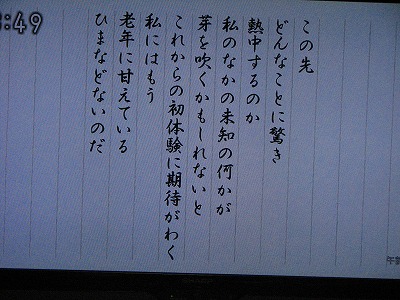 :49
この先
どんなことに驚き
熱中するのか
私のなかの未知の何かが
芽を吹くかもしれないと
これからの初体験に期待がわく
私にはもう
老年に甘えている
ひまなどないのだ